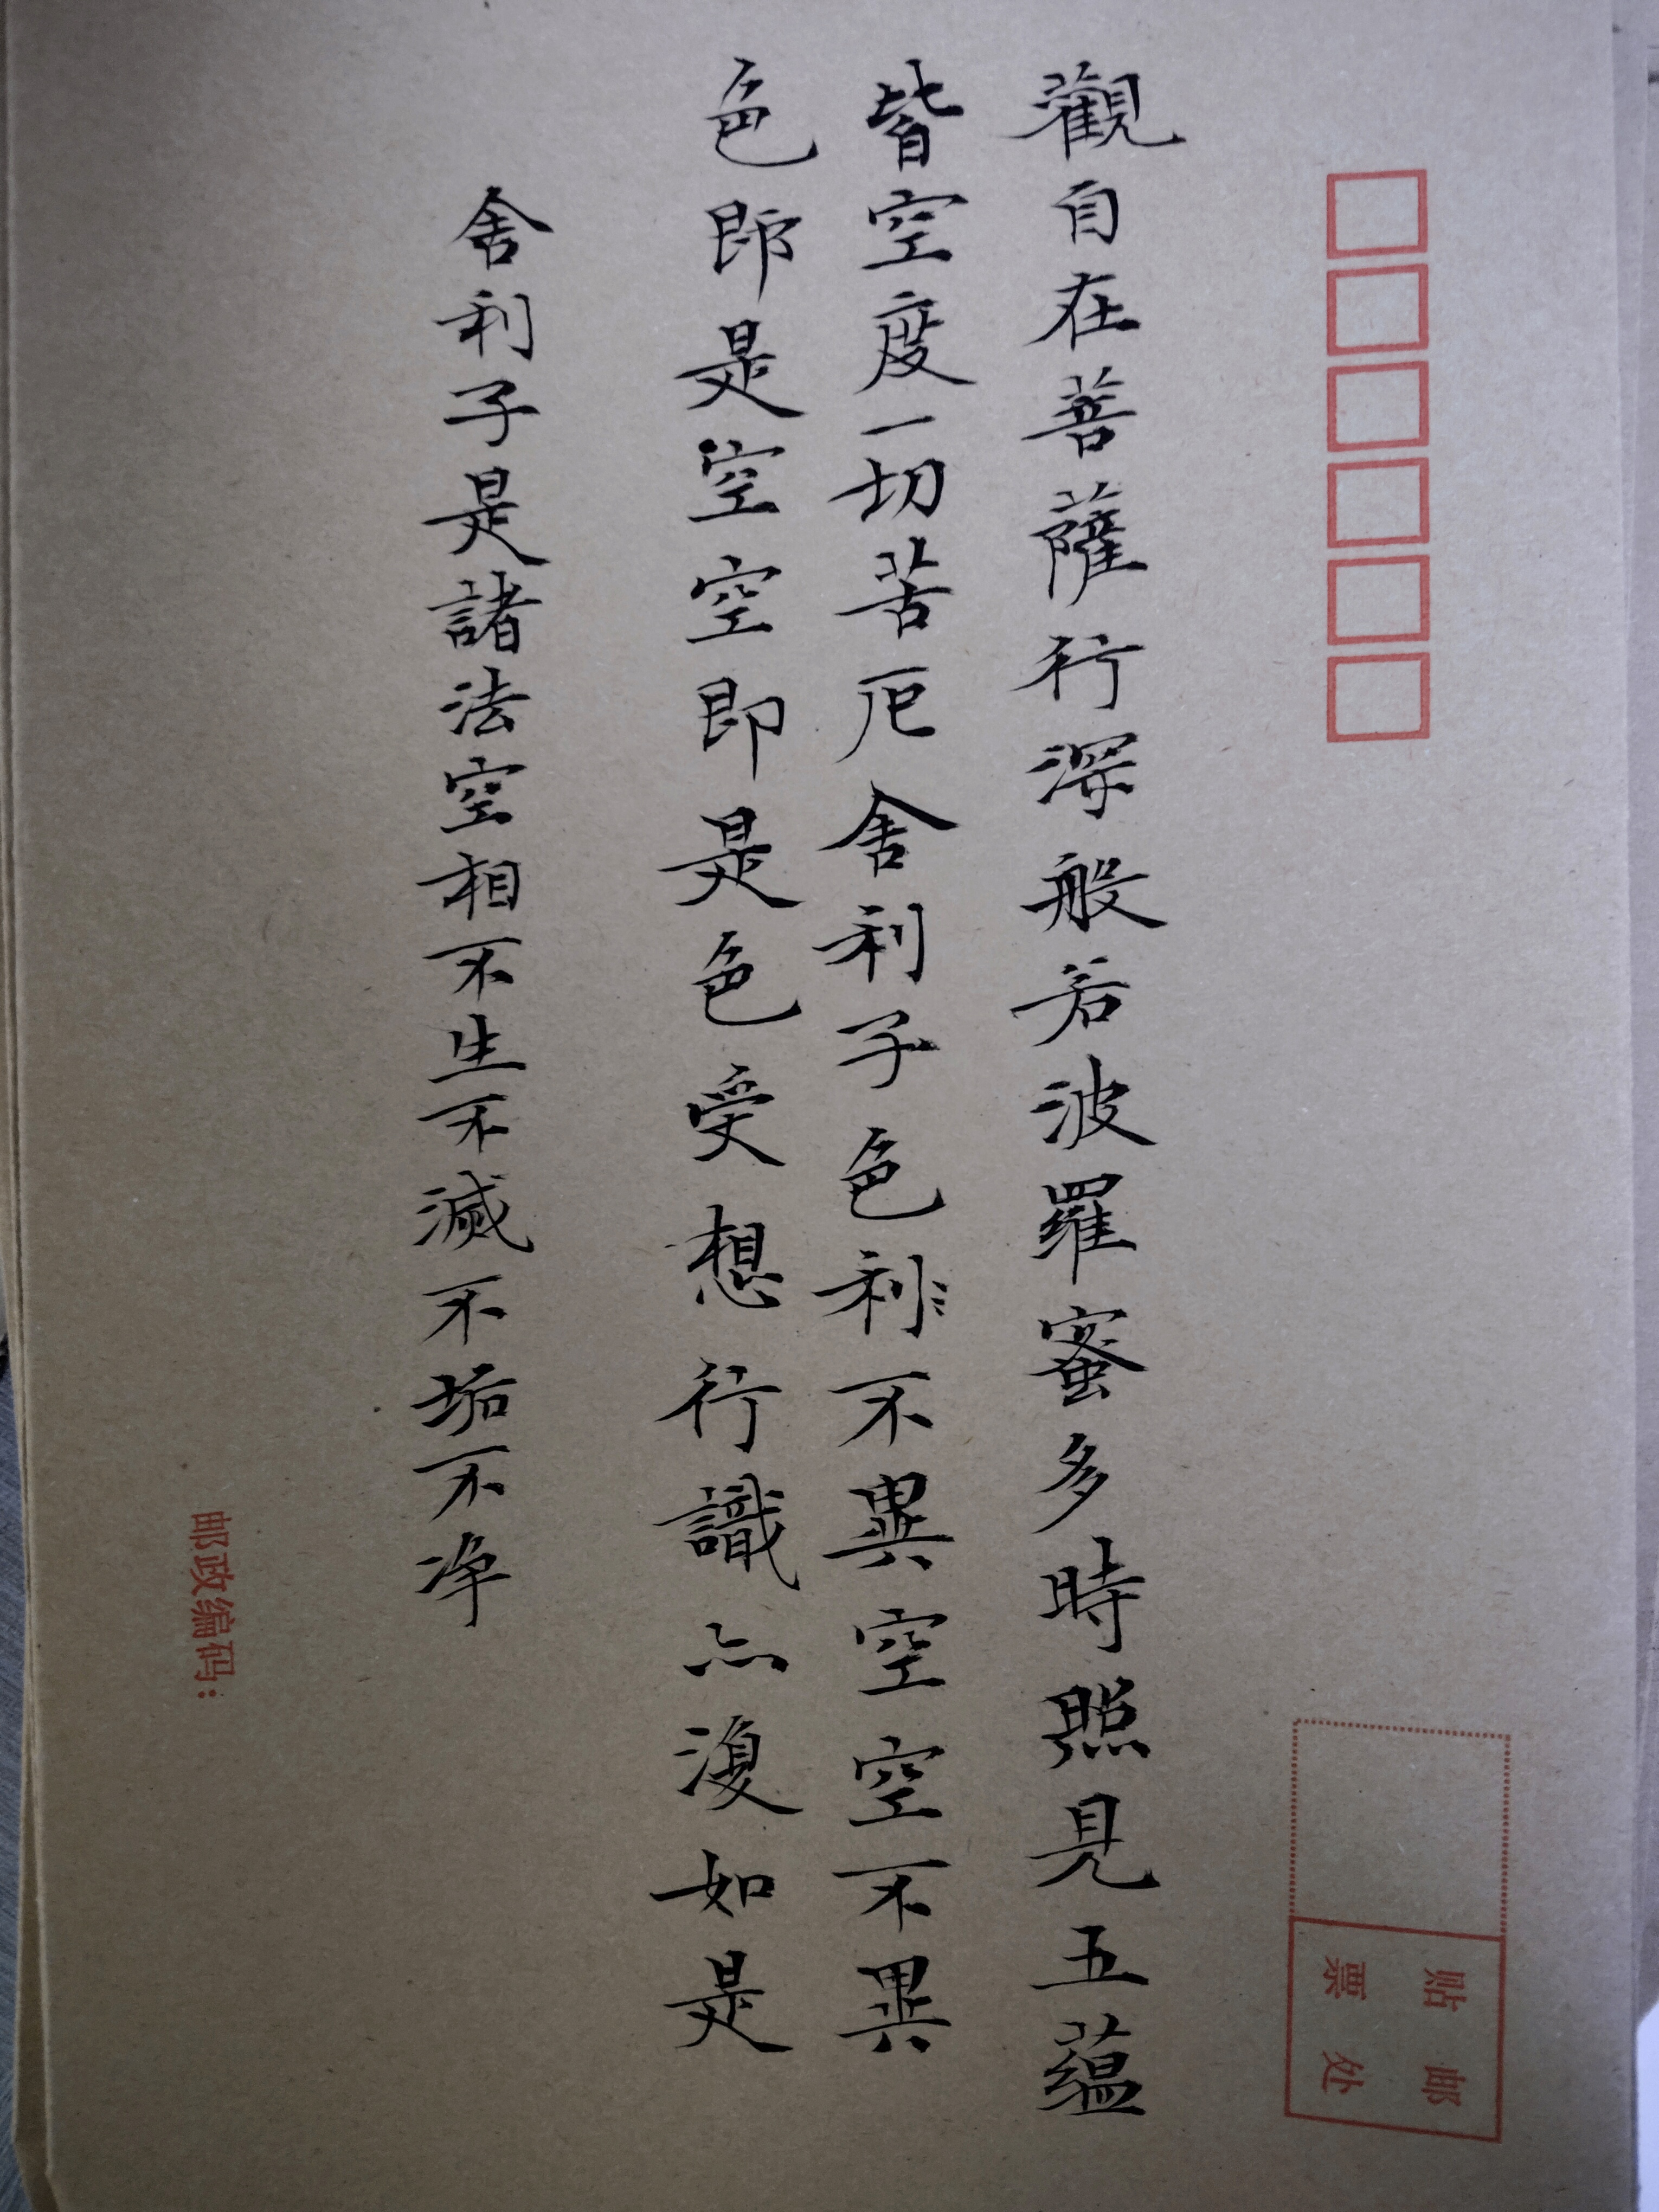 觀自在菩薩行深般若波羅蜜多時照見五蘊
皆空度一切苦厄舍利子色利不異空空不異
色即是空空即是色受想行識亦復如是
舍利子是諸法空相不生不滅不垢不净
邮政编码:
贴邮
票处